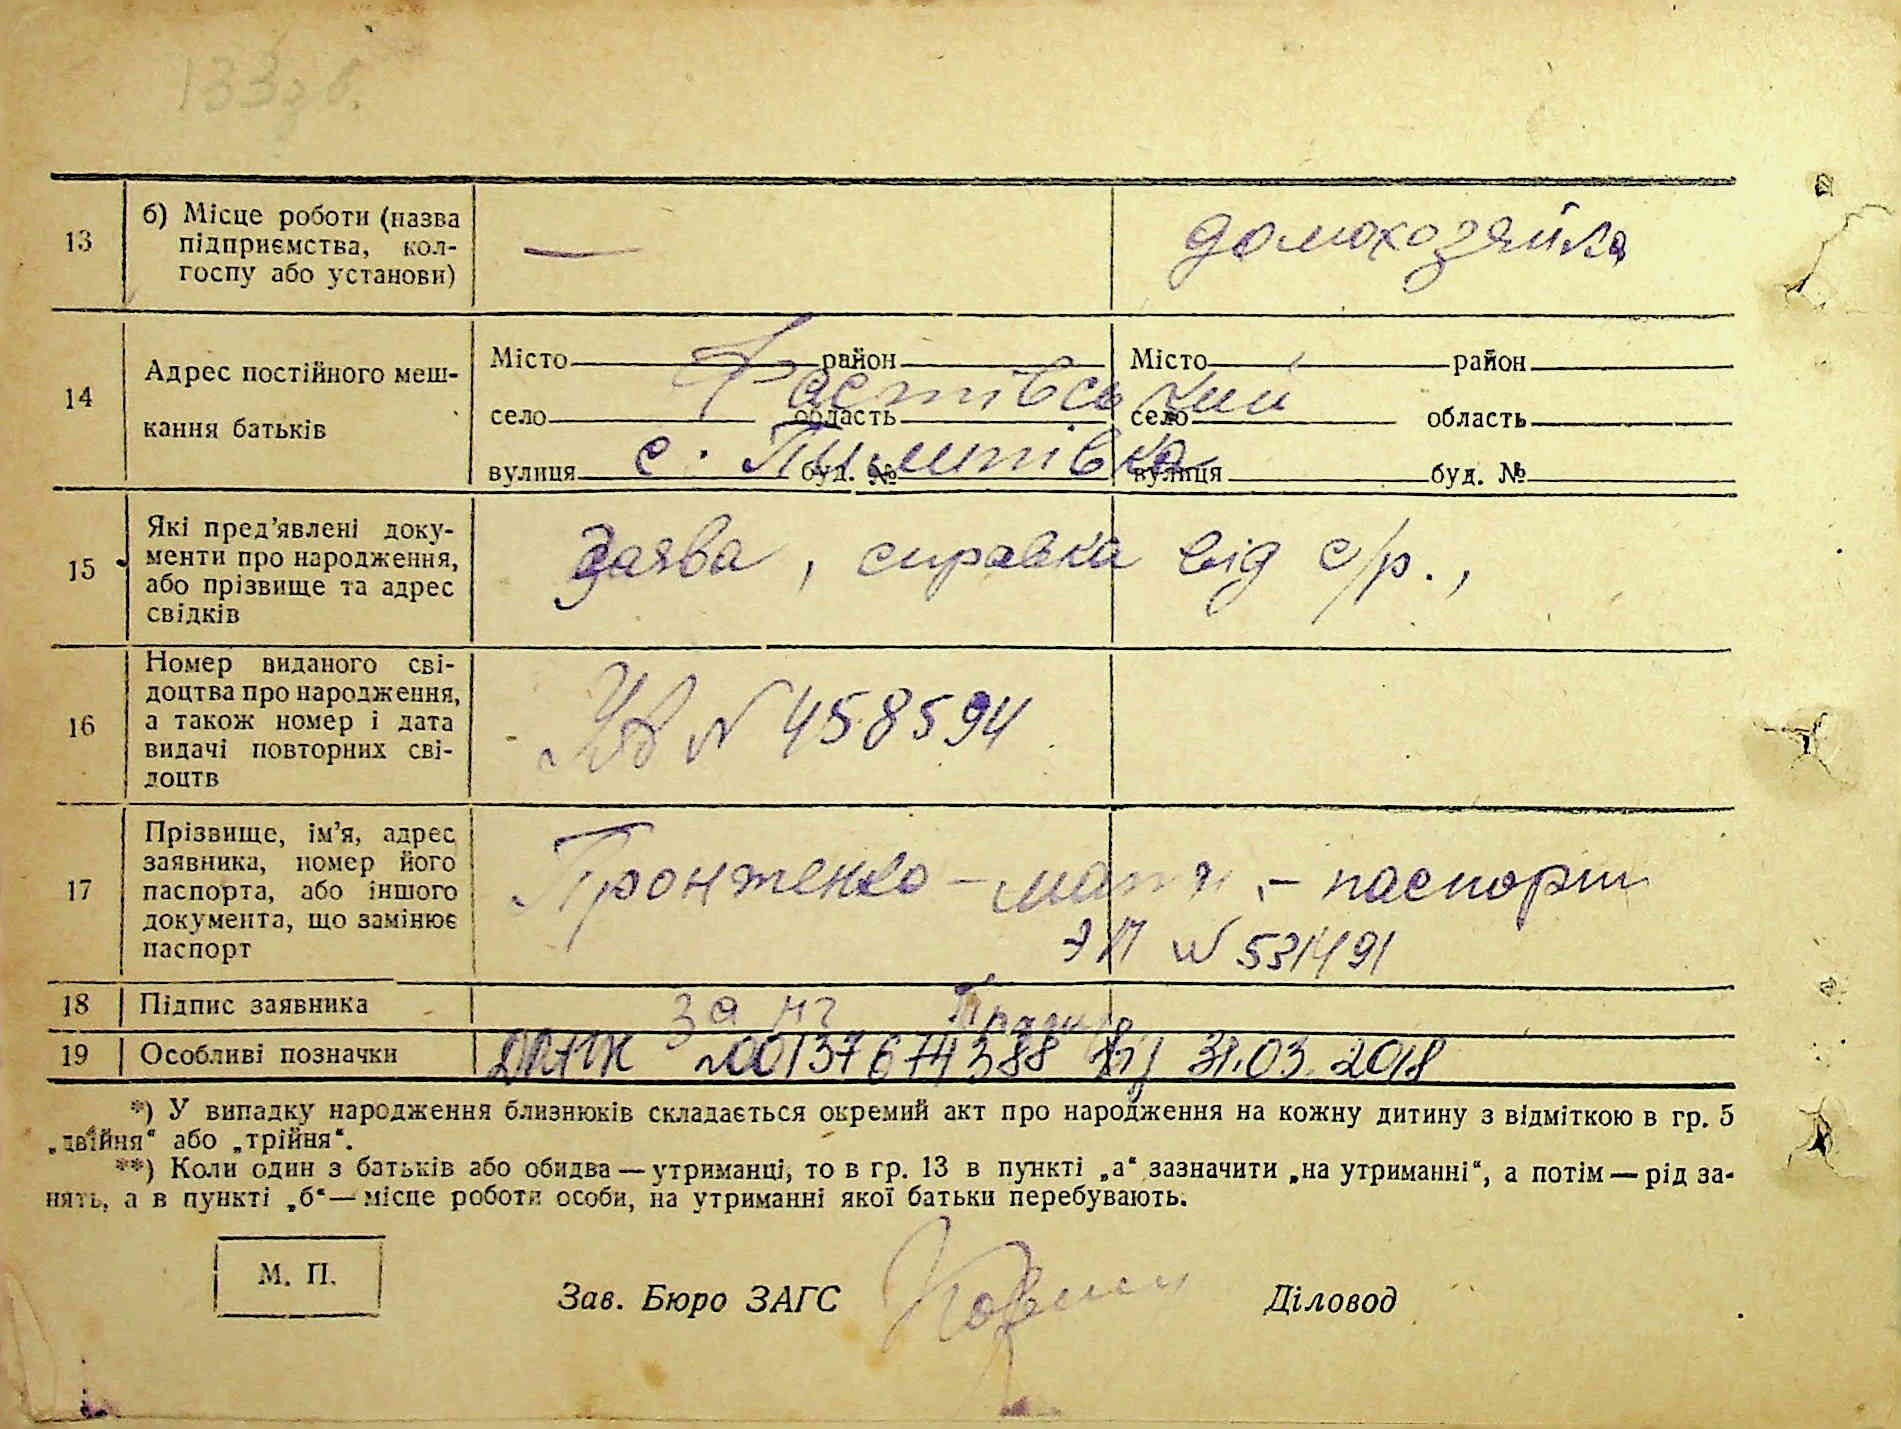 133зв.
13
б) Місце роботи (назва
підприємства, кол-
госпу або установи)
—
домохозяйка
14
Адрес постійного меш-
кання батьків
Місто район Місто район
Фастівський
село область село область
вулиця буд. № вулиця буд. №
15
Які пред’явлені доку-
менти про народження,
або прізвище та адрес
свідків
Заява, справка від с/р.,
16
Номер виданого сві-
доцтва про народження,
а також номер і дата
видачі повторних сві-
доцтв
N 458594
17
Прізвище, ім’я, адрес
заявника, номер його
паспорта, або іншого
документа, що замінює
паспорт
– мати, – паспорт
N 531491
18
Підпис заявника
за
19
Особливі позначки
00137674388 від 31.03.2018
*) У випадку народження близнюків складається окремий акт про народження на кожну дитину з відміткою в гр. 5
„двійня“ або „трійня“.
**) Коли один з батьків або обидва — утриманці, то в гр. 13 в пункті „а“ зазначити „на утриманні“, а потім — рід за-
нять, а в пункті „б“ — місце роботи особи, на утриманні якої батьки перебувають.
М. П.
Зав. Бюро ЗАГС
Діловод